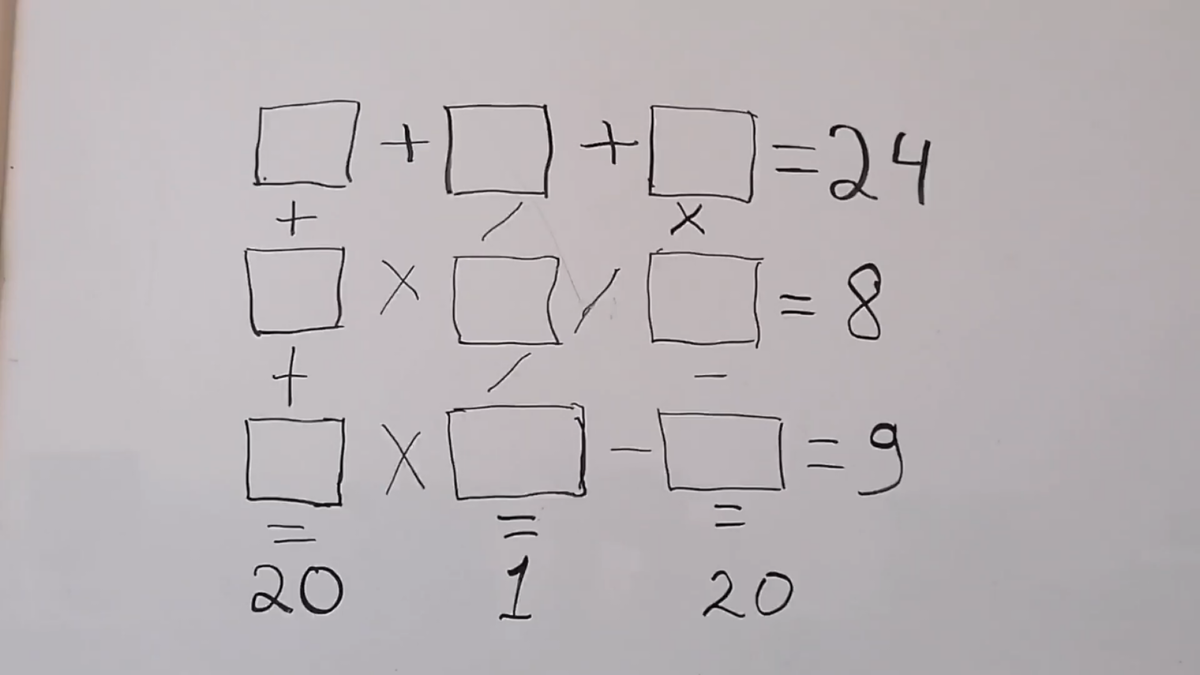 □ + □ + □ = 24
+ / ×
□ × □ / □ = 8
+ / -
□ × □ - □ = 9
= = =
20 1 20